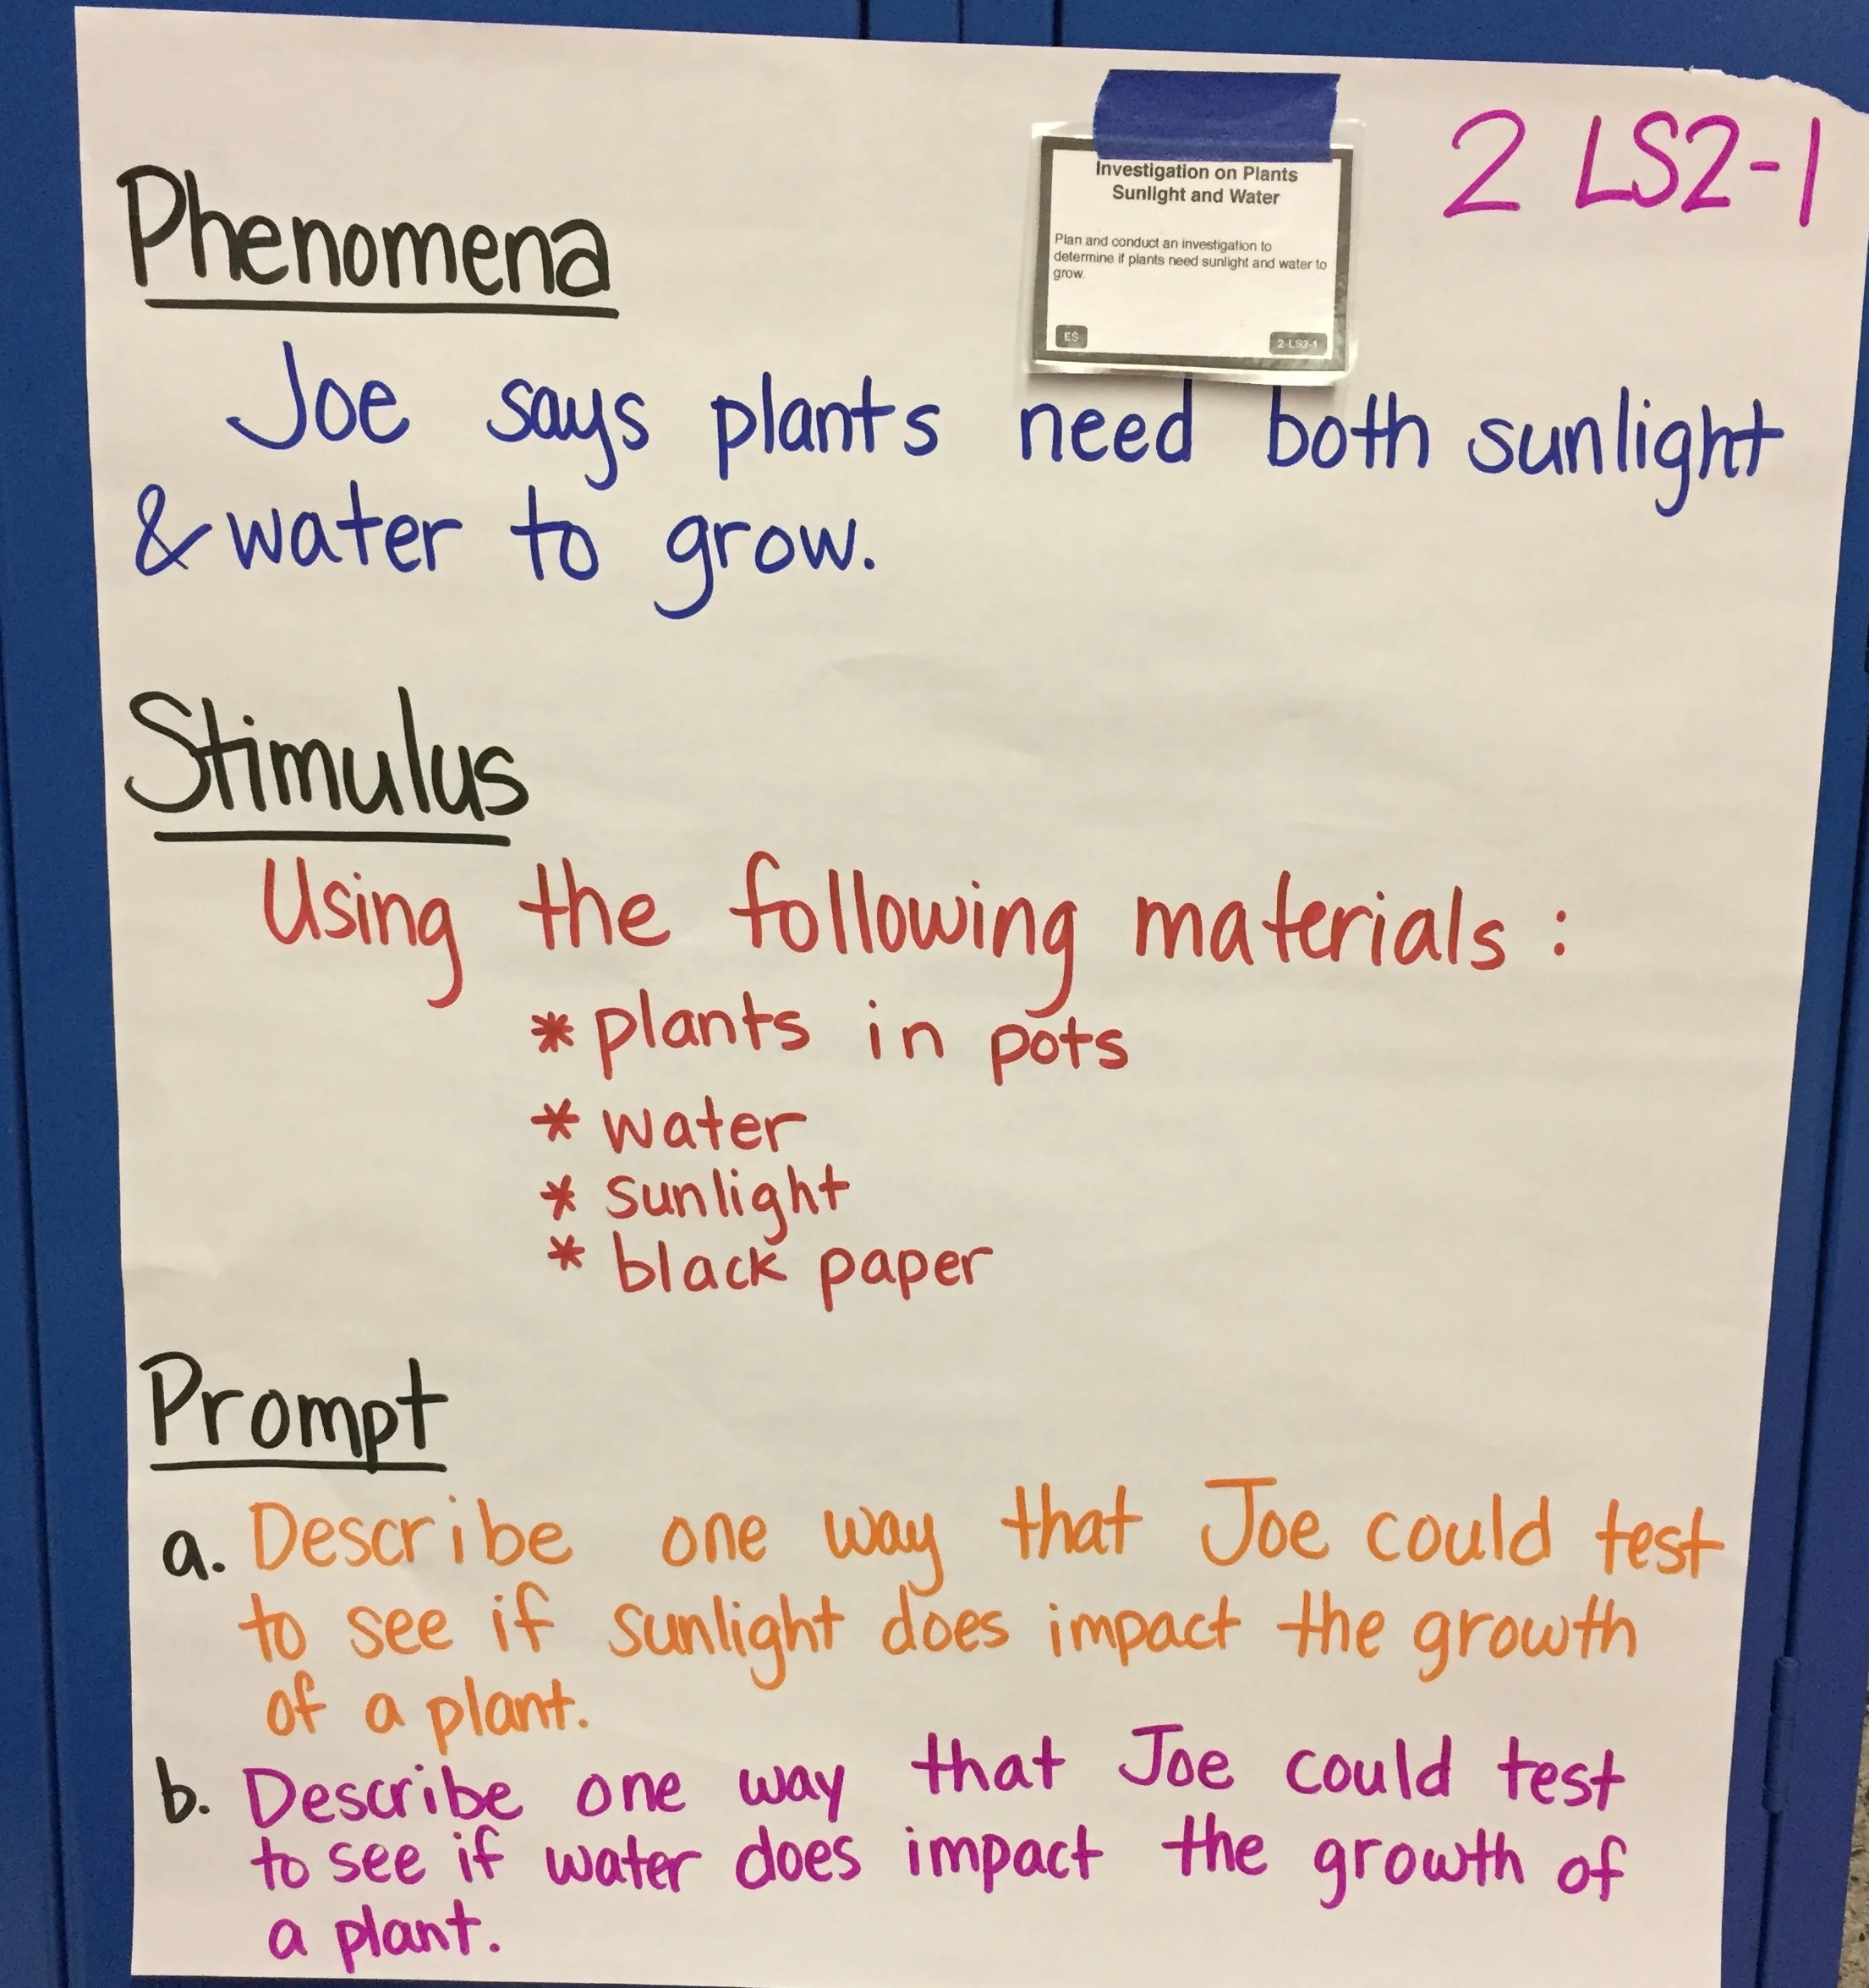 2 LS2-1
Investigation on Plants
Sunlight and Water
Plan and conduct an investigation to
determine if plants need sunlight and water to
grow.
ES
2-LS2-1
Phenomena
Joe says plants need both sunlight
& water to grow.
Stimulus
Using the following materials:
* plants in pots
* water
* sunlight
* black paper
Prompt
a. Describe one way that Joe could test
to see if sunlight does impact the growth
of a plant.
b. Describe one way that Joe could test
to see if water does impact the growth of
a plant.